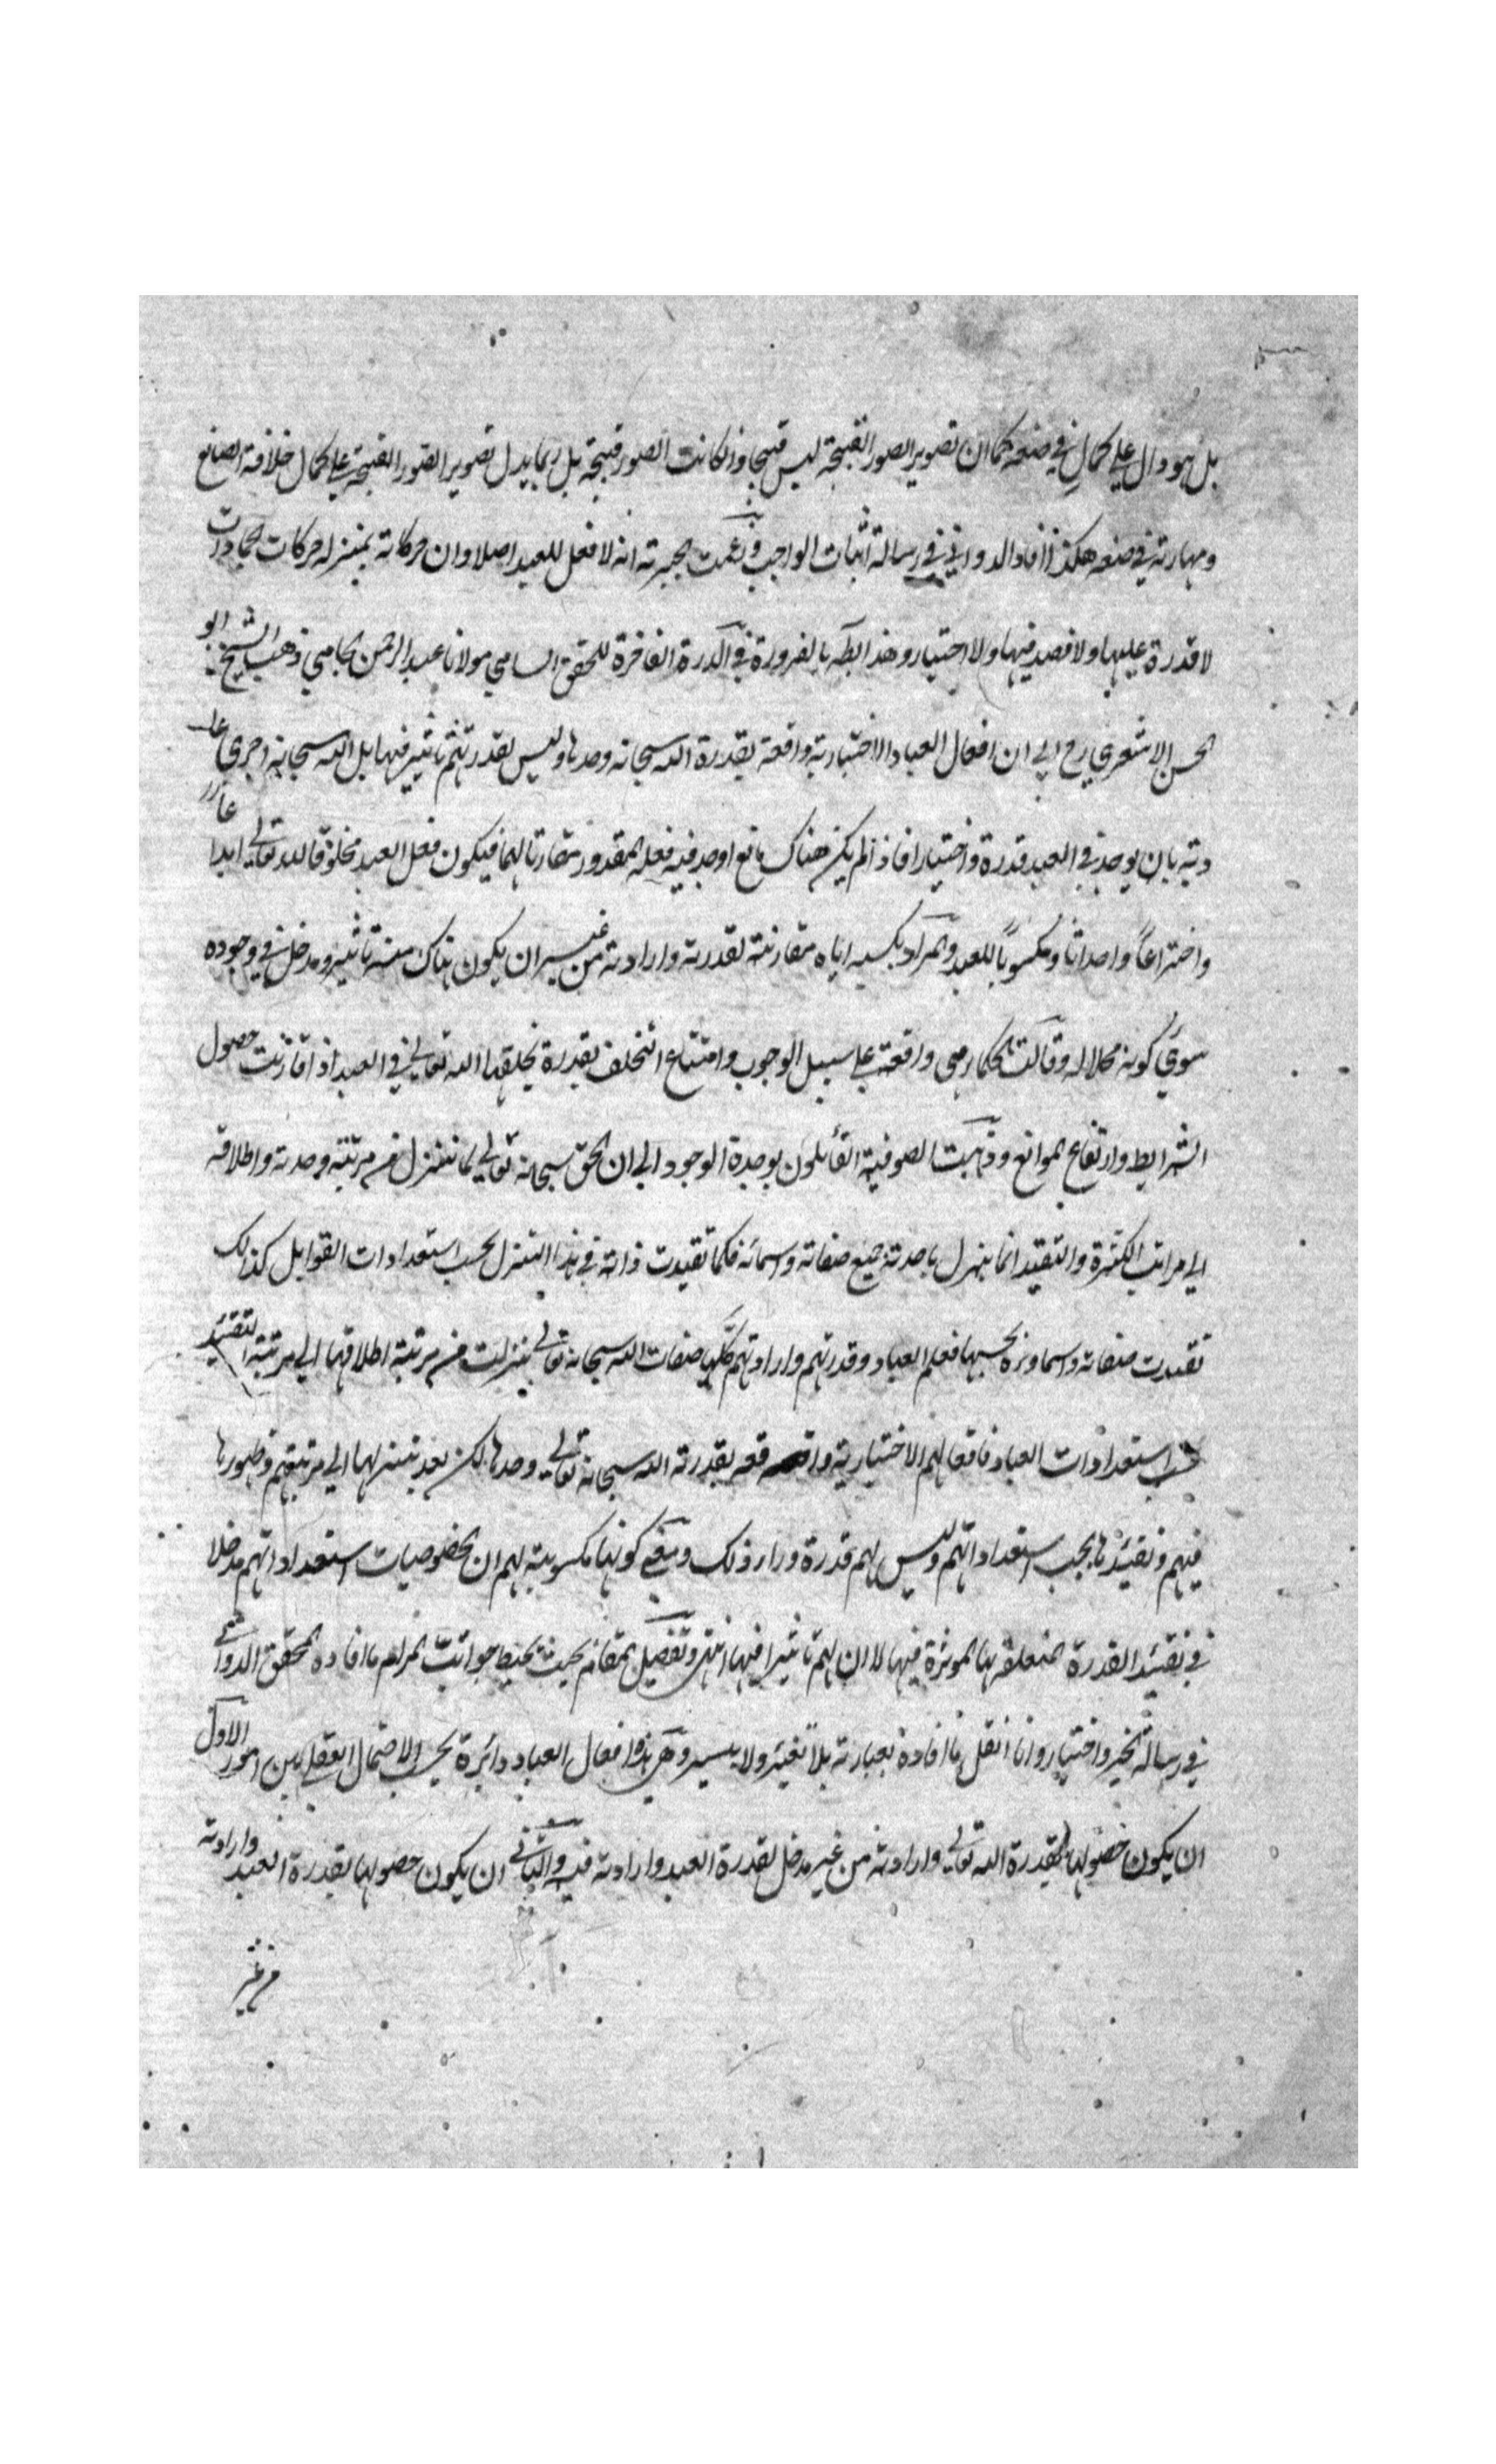 بل هو دال علي كمالٍ في صنعه كما ان تصوير الصور القبيحة ليس قبيحا وان كانت الصور قبيحة بل ربما يدل تصوير الصور القبيحة علي كمال حذاقة الصانع
ومهارته في صنعه هكذا افاد الدواني في رسالة اثبات الواجب وزعمت الجبرية انه لا فعل للعبد اصلا وان حركاته بمنزله حركات الجمادات
لا قدرة عليها ولا قصد فيها ولا اختيار وهذا بط بالضرورة في الدرة الفاخرة للمحقق السامي مولانا عبد الرحمن الجامي ذهب الشيخ ابو
الحسن الاشعري رح الي ان افعال العباد الاختيارية واقعة بقدرة الله سبحانه وحدها وليس لقدرتهم تاثير فيها بل الله سبحانه اجري عا
دته بان يوجد في العبد قدرة واختيارا فاذا لم يكن هناك مانع اوجد فيه فعله المقدور مقارنا لهما فيكون فعل العبد مخلوقا لله تعالي ابدا عا
واختراعاً واحداثا ومكسوباً للعبد والمراد بكسبه اياه مقارنته لقدرته وارادته من غير ان يكون هناك منه تاثير ومدخل في وجوده
سوي كونه محلا له وقالت الحكماء هي واقعة علي سبيل الوجوب وامتناع التخلف بقدرة يخلقها الله تعالي في العبد اذا قارنت حصول
الشرايط وارتفاع الموانع وذهبت الصوفية القائلون بوحدة الوجود الي ان الحق سبحانه تعالي لما تنزل من مرتبة وحدته واطلاقه
الي مراتب الكثرة والتقيد انما ينزل باحدية جميع صفاته واسمائه فكما تقيدت ذاته في هذا التنزل بحسب استعدادات القوابل كذلك
تقيدت صفاته واسماوه بحسبها فعلم العباد وقدرتهم وارادتهم كلها صفات الله سبحانه تعالي تنزلت من مرتبة اطلاقها الي مرتبة التقيد
بحسب استعدادات العباد فافعالهم الاختيارية واقعه بقدرة الله سبحانه تعالي وحدها لكن بعد تنزلها الي مرتبتهم وظهورها
فيهم وتقيدها بحسب استعداداتهم وليس لهم قدرة وراء ذلك ومعني كونها مكسوبة لهم ان لخصوصيات استعداداتهم مدخلا
في تقيد القدرة المتعلقة بها الموثرة فيها لا ان لهم تاثيرا فيها انتهي وتفصيل المقام بحيث يحيط جوانب المرام ما افاده المحقق الدواني
في رسالة الجبر واختيار وانا انقل ما افاده بعبارته بلا تغير ولا يسير وهي هذه افعال العباد دائرة بحسب الاحتمال العقلي بين امور الاول
ان يكون حصولها بقدرة الله تعالي وارادته من غير مدخل لقدرة العبد وارادته فيه والثاني ان يكون حصولها بقدرة العبد وارادته
من غير